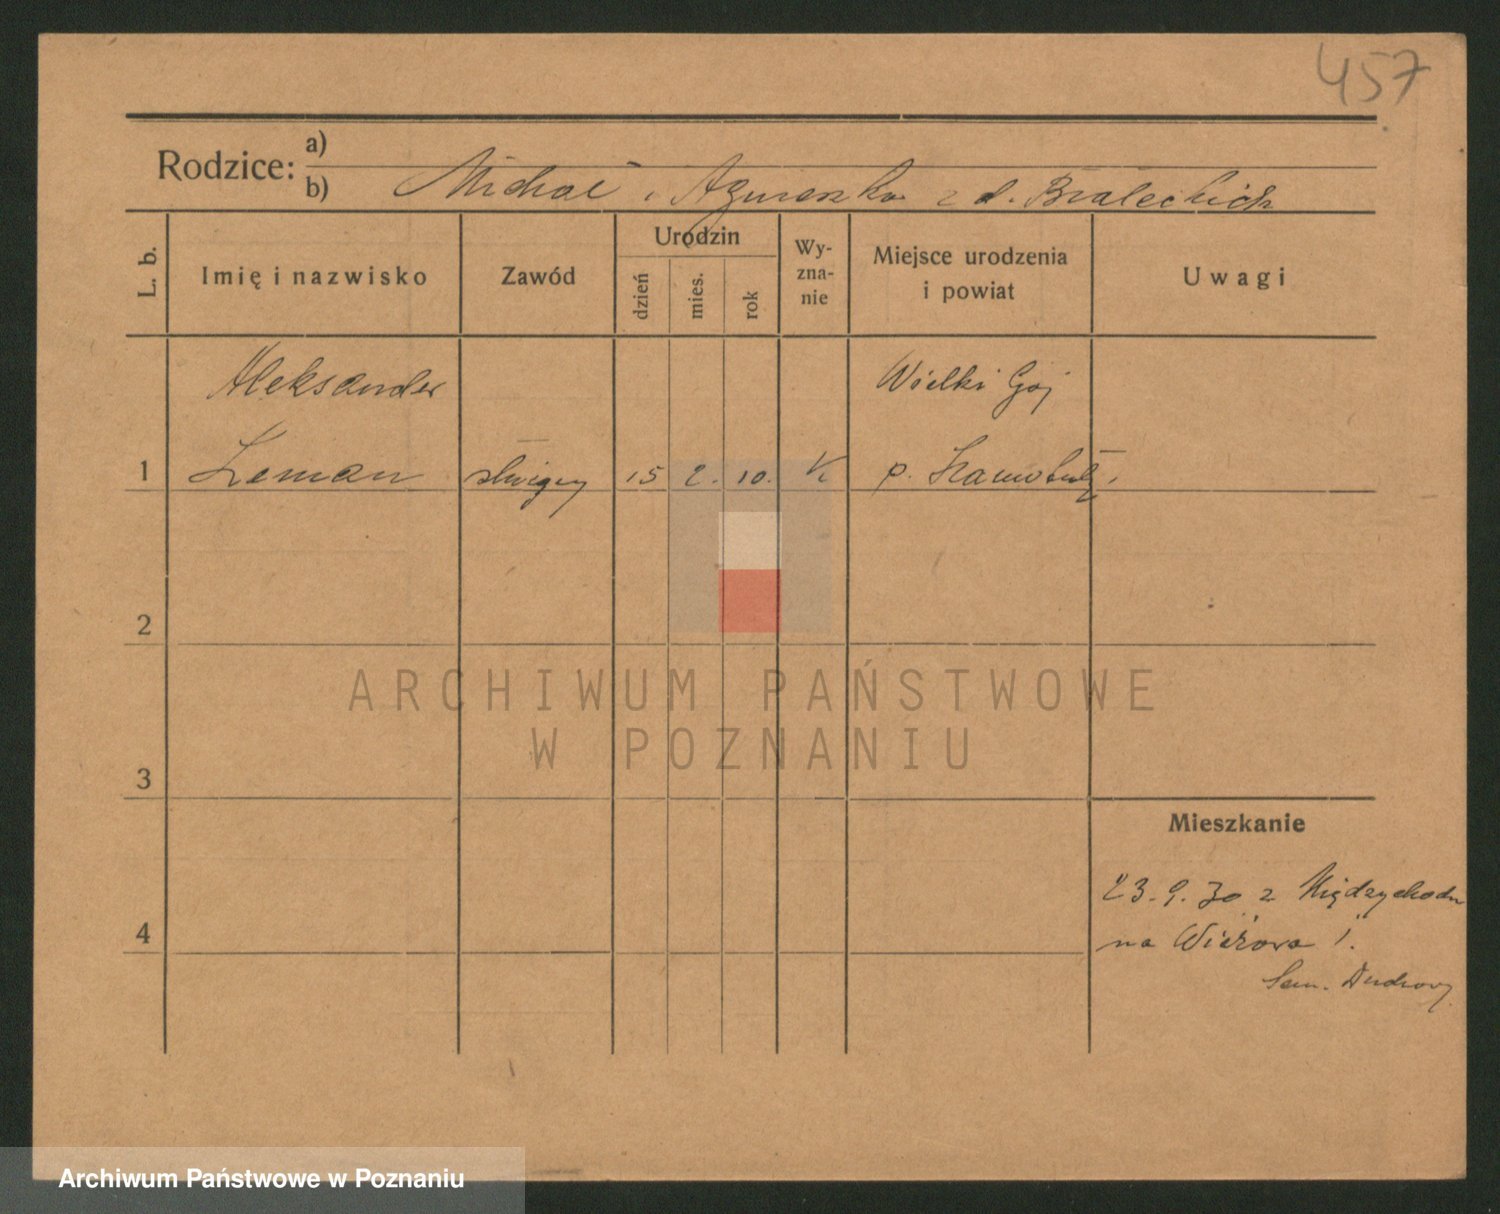 457
Rodzice: a)
b) Michał i Agnieszka z d. Białeckich
L. b.
Imię i nazwisko
Zawód
Urodzin
dzień
mies.
rok
Wy-
zna-
nie
Miejsce urodzenia
i powiat
Uwagi
Aleksander
Wielki Gaj
1 Leman 15 2. 10. K p. Szamotuły
2
3
4
Mieszkanie
23.9.30 z Międzychodu
na Wieżowa 1.
Sem. Duchowy
ARCHIWUM PAŃSTWOWE
W POZNANIU
Archiwum Państwowe w Poznaniu